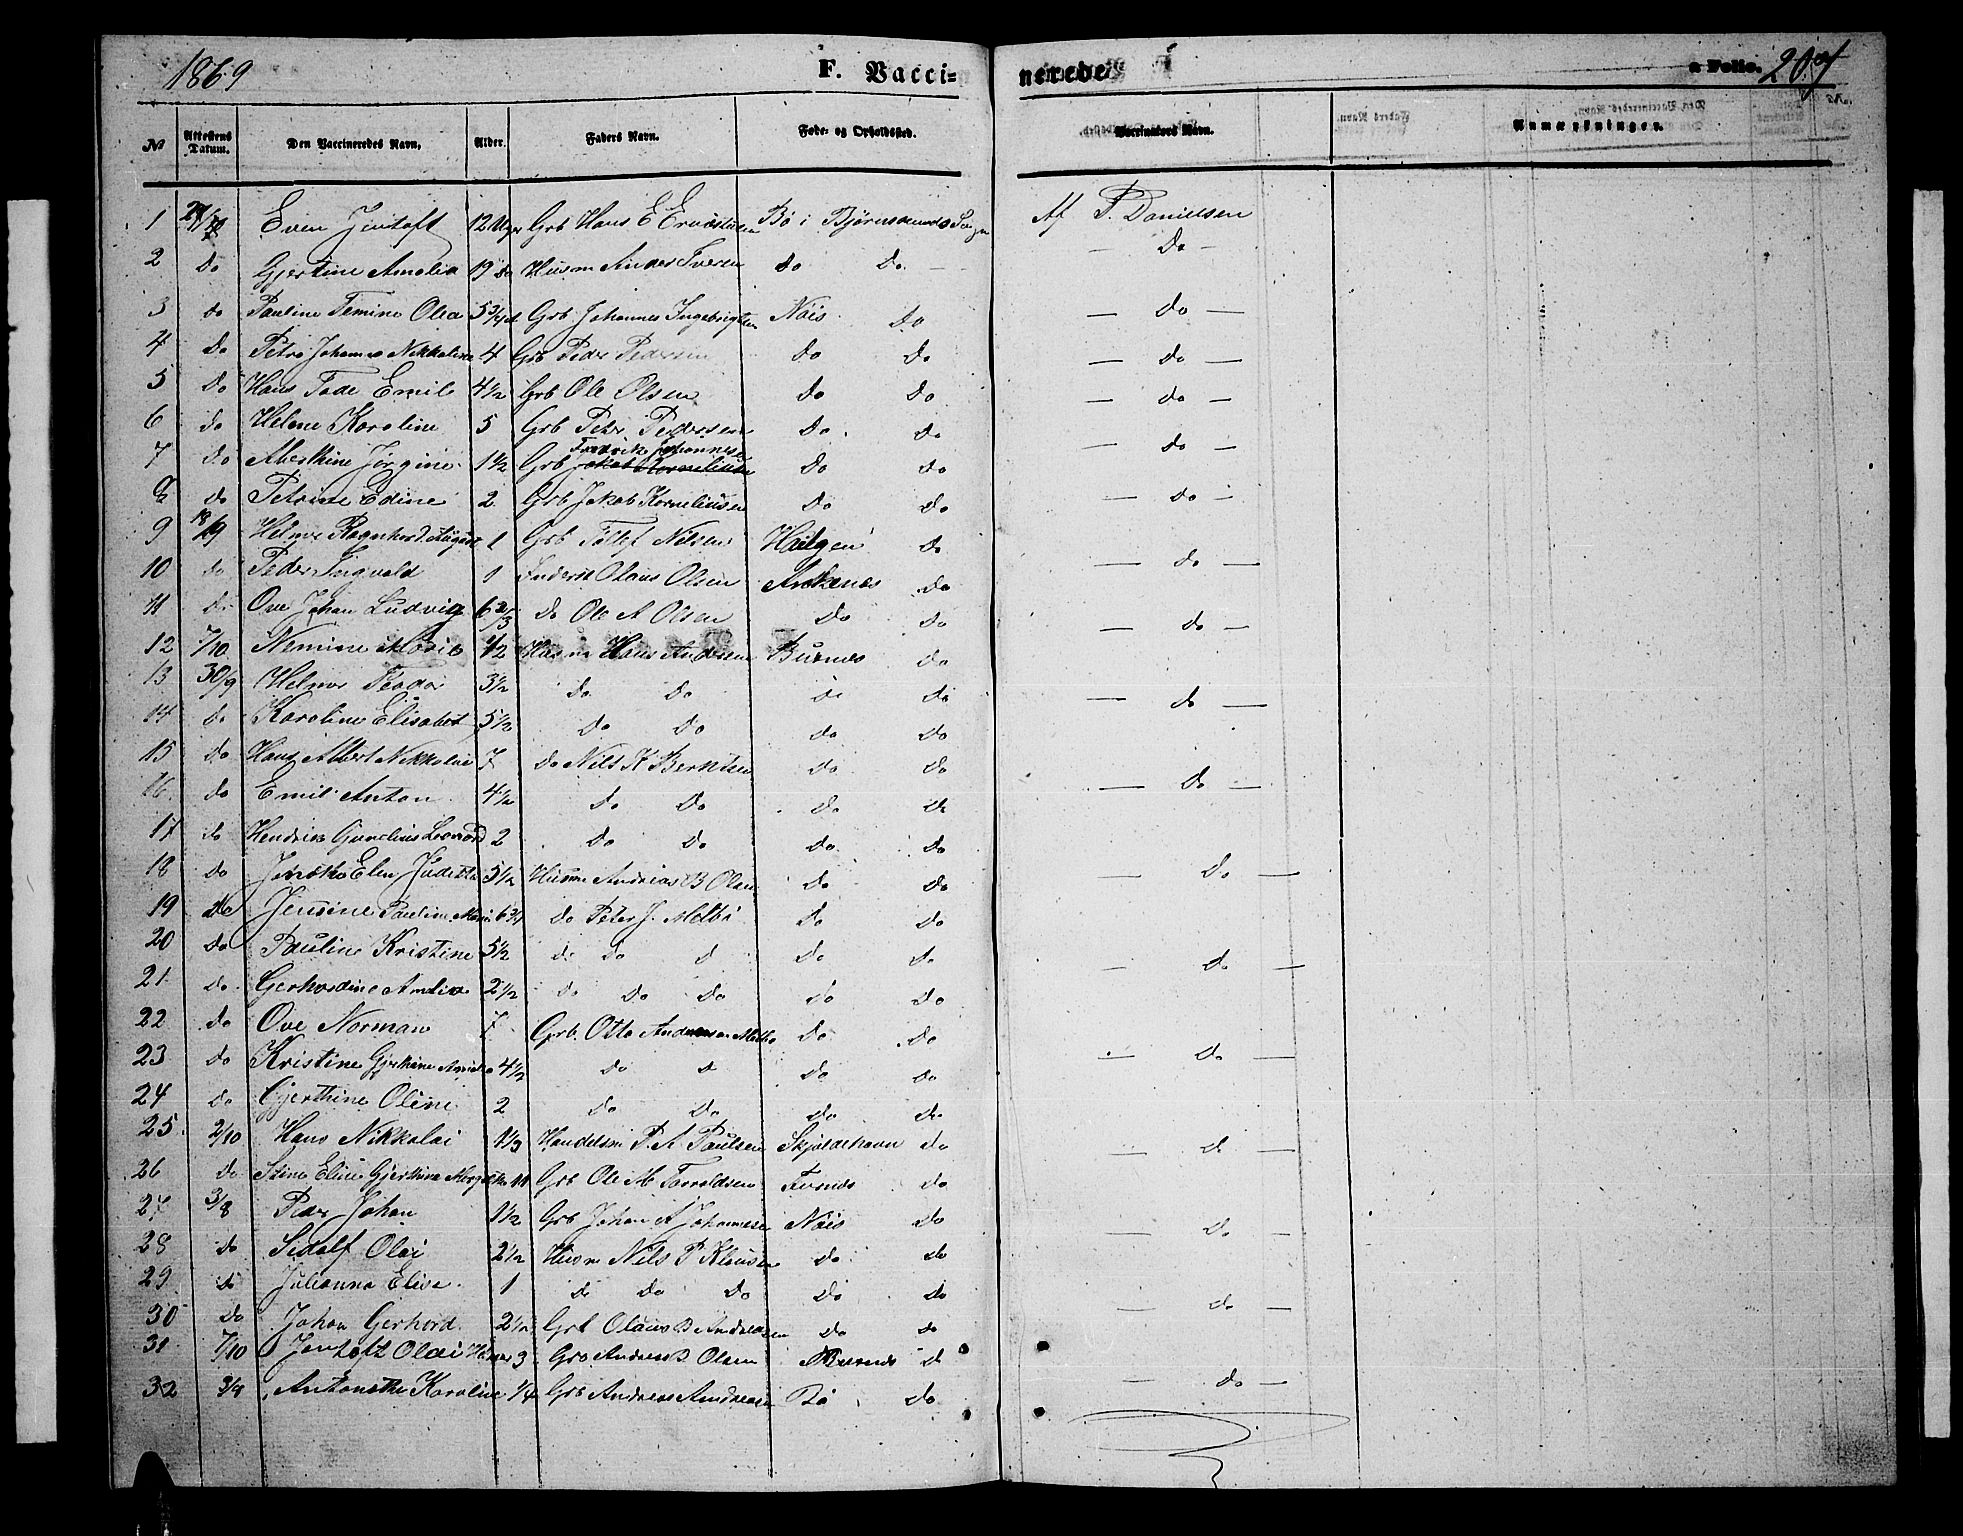 1869 F. Vacci= nerede a Folio. 207
№ Attestens Datum. Den Vaccineredes Navn, Alder. Faders Navn. Føde- og Opholdssted. Vaccinators Navn. Anmærkninger.
1 Even Jentoft 12 Uger Grb Hans E Bø i Af P. Danielsen
2 do Gjertine Amalia 19 do Husm Andor Iversen do do — Do —
3 do Pauline Olea 5 3/4 Grb Johannes Ingebrigtsen Nøis do — do —
4 do Petra Johanna Nikkoline 4 Grb Peder Pedersen do do — do —
5 do Hans Emil 4 1/2 Grb Ole Olsen do do — do —
6 do Helene Karoline 5 Grb Peter Pedersen do do
7 do Jørgine 1 1/2 Grb Fredrik Johannesen do do — do —
8 do Petrine Edine 2 Grb Jakob Korneliusen do do — do —
9 18/9 Helmer 1 Grb Nilsen do
10 do Peder Ingvald 1 Olaus Olsen Ankenes do — do —
11 do Ove Johan Ludvig 6 2/3 do Ole A Olsen do do — do —
12 7/10 Nemine Marie 1/2 Husm Hans Andersen Burnes do
13 30/9 Helmer Teodor 3 1/2 do do do do
14 do Karoline Elisabet 5 1/2 do do do do — do —
15 do Hans Albert Nikkolai 7 do Nils K Berntsen do do
16 do Emil Anton 4 1/2 do do do do — do —
17 do Hendrik 2 do do do do
18 do Elen 5 1/2 Husm Andreas B Olsen do do — do —
19 do Jensine Pauline Marie 6 3/4 do Peter J. Melbø do do
20 do Pauline Kristine 5 1/2 do do d do do — do —
21 do Gerhardine Amalia 2 1/2 do do do do do
22 do Ove Norman 7 Grb. Otto Andersen Melbø do do
23 do Kristine Gjertine 4 1/2 do d do do — do —
24 do Gjerthine Oline 2 do do do do
25 2/10 Hans Nikkolai 1 1/3 Handelsm P. A Paulsen Skjoldehavn do — do —
26 do Stina Eline Gjerthine 11 Grb Ole M Toraldsen do
27 3/8 Peder Johan 1 1/2 Grb Johan A Johannesen Nøis do — do —
28 do Sidolf Olai 2 1/2 Husm Nils P Klausen do do
29 do Julianna Elisa 1 do do do do do
30 do Johan Gerhard 2 1/2 Grb Olaus B Andreasen do do — do —
31 7/10 Jentoft Olai 3 Grb Andreas B Olsen d
32 3/8 Karoline 1/4 Grb Andreas Andreasen Bø do — do —